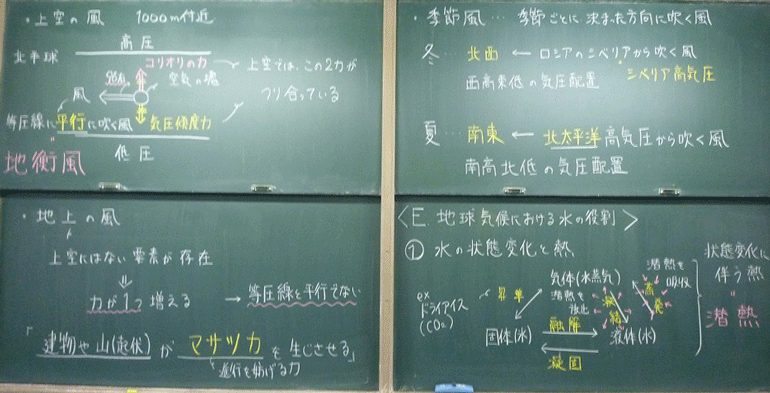 ・上空の風 1000m付近
高圧
北半球
コリオリの力
空気の塊
風
上空では、この2力が
つり合っている
等圧線に平行に吹く風
気圧傾度力
低圧
地衡風
・地上の風
上空にはない要素が存在
⇓
力が1つ増える → 等圧線と平行でない
「建物や山(起伏)がマサツ力を生じさせる」
進行を妨げる力
・季節風…季節ごとに決まった方向に吹く風
冬…北西 ← ロシアのシベリアから吹く風
シベリア高気圧
西高東低の気圧配置
夏…南東 ← 北太平洋高気圧から吹く風
南高北低の気圧配置
<E. 地球気候における水の役割>
① 水の状態変化と熱
ex
ドライアイス
(CO₂)
昇華
気体(水蒸気)
潜熱を
放出
凝結
潜熱を
吸収
蒸発
固体(氷)
融解
液体(水)
凝固
状態変化に
伴う熱
潜熱